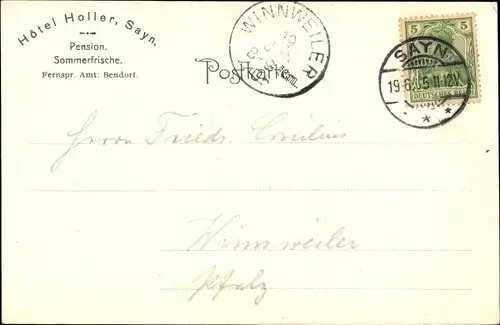 Hôtel Holler, Sayn.
Pension.
Sommerfrische.
Fernspr. Amt: Bendorf.
Postkarte
WINNWEILER
5 5
DEUTSCHES
SAYN
19.6.05.11-12V.
Herrn Friedr.
Winnweiler
Pfalz